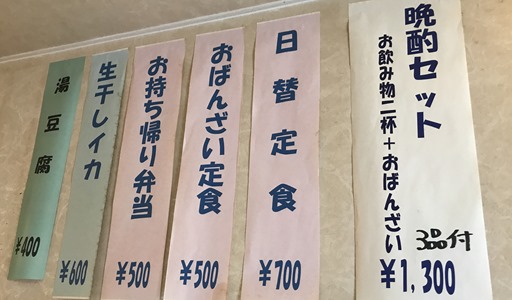 晩酌セット
お飲み物二杯+おばんざい
3品付
¥1,300
日替定食
¥700
おばんざい定食
¥500
お持ち帰り弁当
¥500
生干しイカ
¥600
湯豆腐
¥400